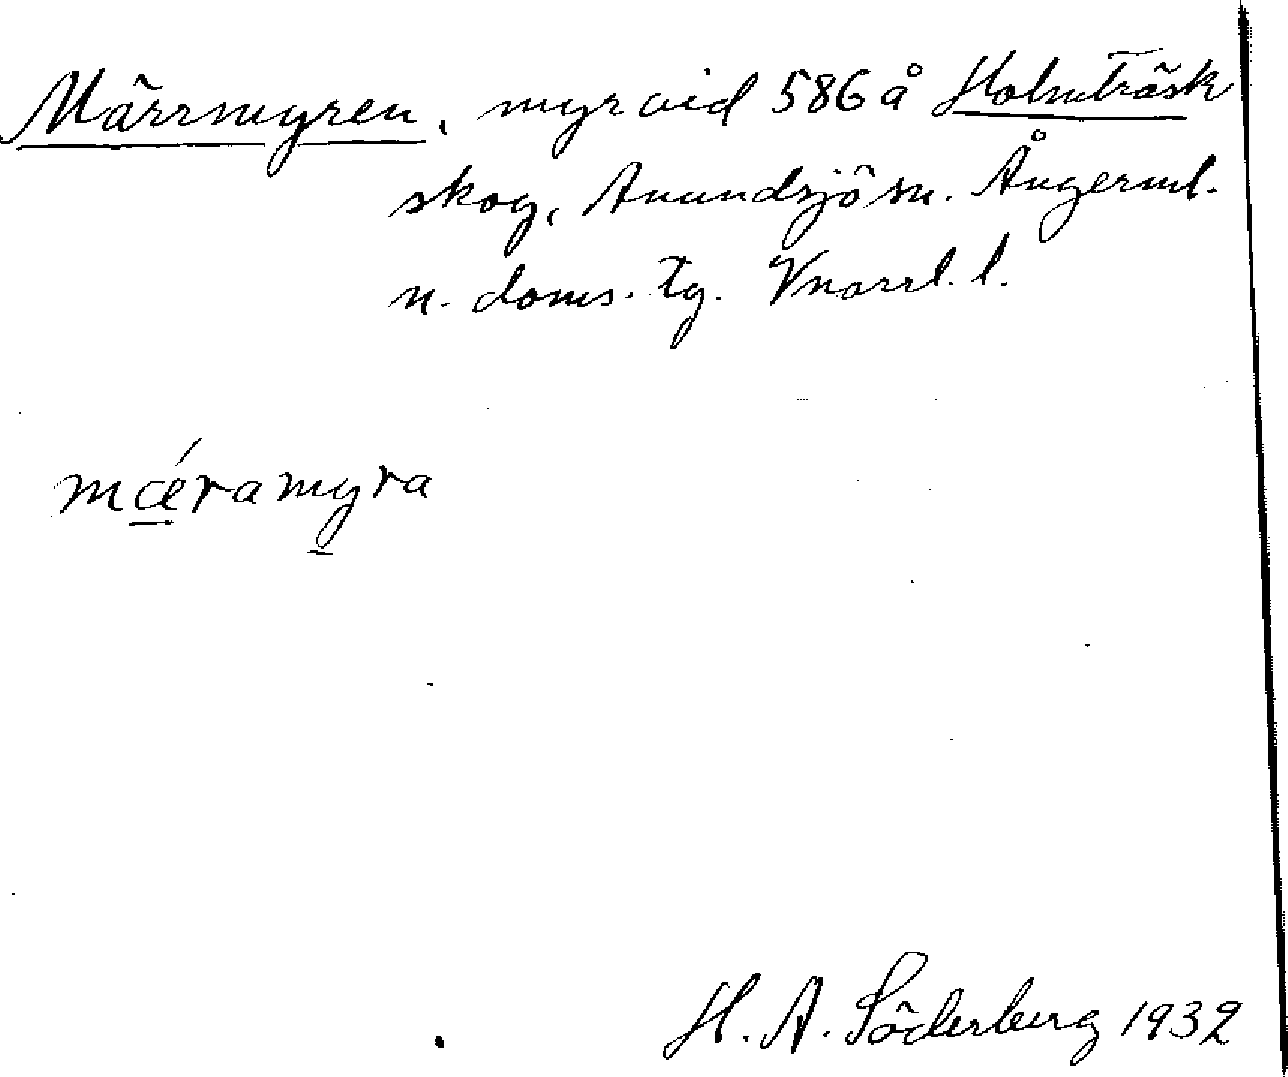 Märrmyren, myr vid 586 å Holmträsk
skog, Anundsjö sn. Ångerml.
n. doms. tg. Vnorrl. l.
mǽramyra
H. A. Söderberg 1932